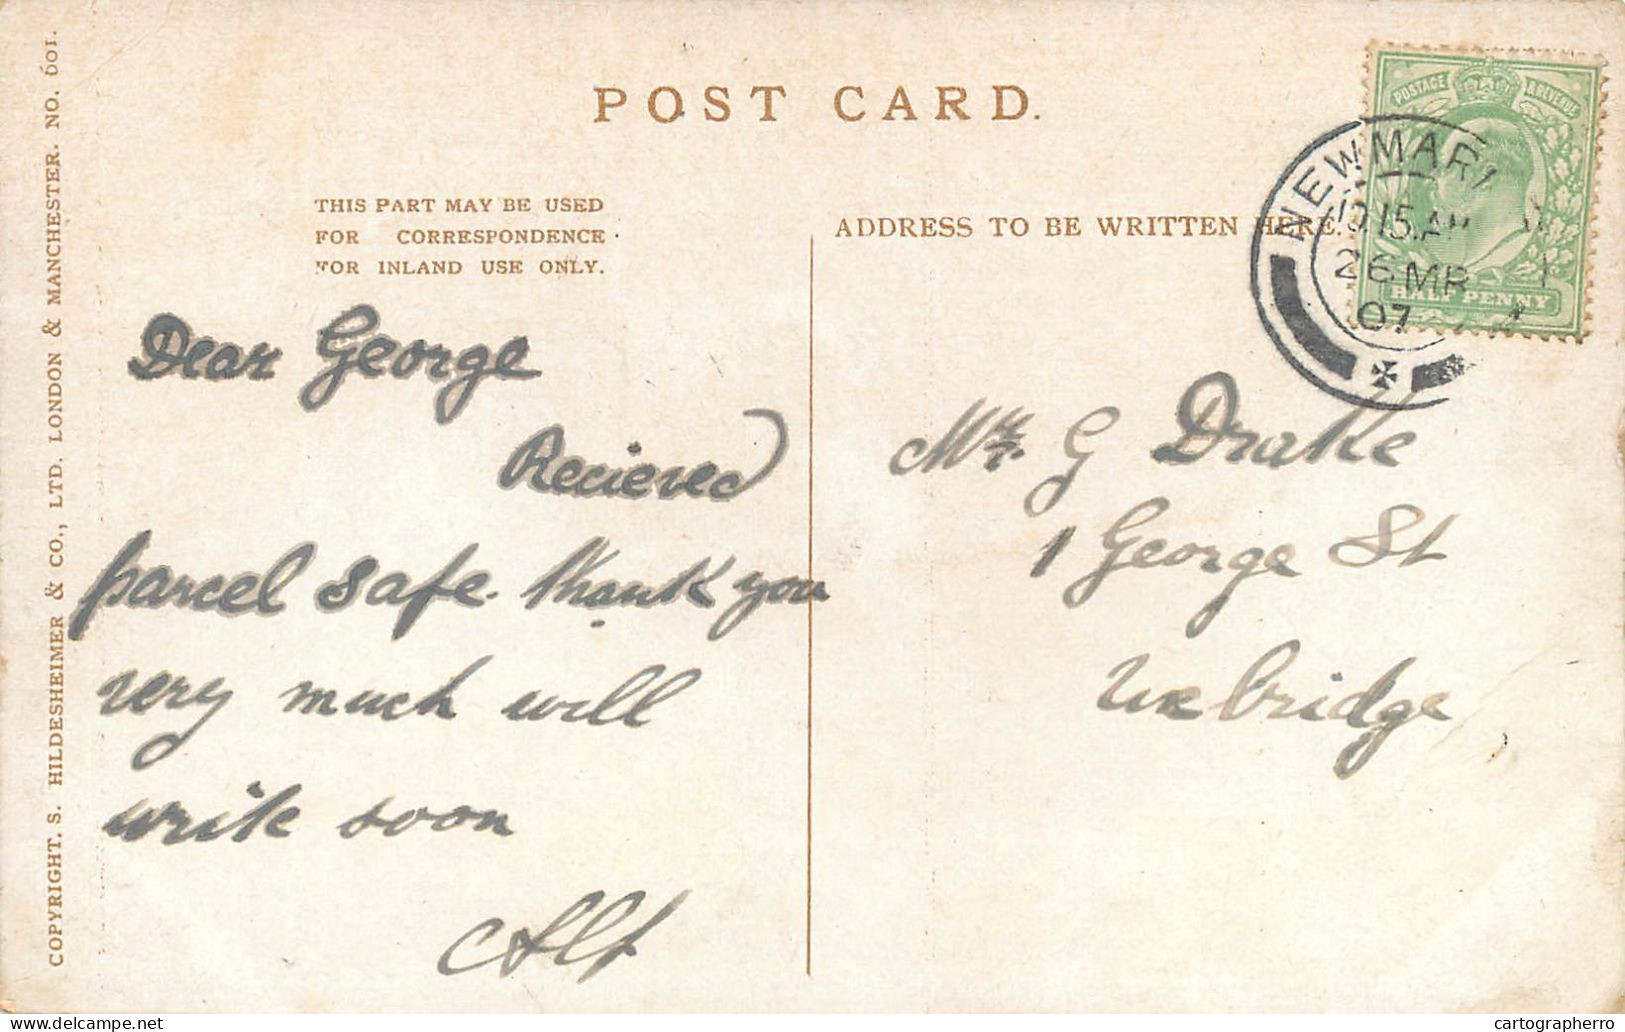 POST CARD.
THIS PART MAY BE USED
FOR CORRESPONDENCE
FOR INLAND USE ONLY.
ADDRESS TO BE WRITTEN HERE.
POSTAGE & REVENUE
HALF PENNY
NEWMAR
10 15 AM
26 MR
07
Dear George
Recieved
parcel safe. thank you
very much will
write soon
Alf
Mr. G Drake
1 George St
Uxbridge
COPYRIGHT. S. HILDESHEIMER & CO., LTD. LONDON & MANCHESTER. NO. 601.
delcampe.net
cartographerro